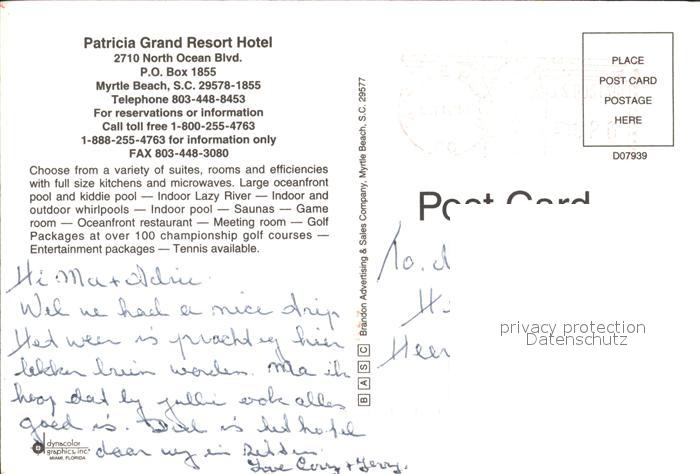 Patricia Grand Resort Hotel
2710 North Ocean Blvd.
P.O. Box 1855
Myrtle Beach, S.C. 29578-1855
Telephone 803-448-8453
For reservations or information
Call toll free 1-800-255-4763
1-888-255-4763 for information only
FAX 803-448-3080
Choose from a variety of suites, rooms and efficiencies
with full size kitchens and microwaves. Large oceanfront
pool and kiddie pool — Indoor Lazy River — Indoor and
outdoor whirlpools — Indoor pool — Saunas — Game
room — Oceanfront restaurant — Meeting room — Golf
Packages at over 100 championship golf courses —
Entertainment packages — Tennis available.
Hi Ma +
Wel we had a nice trip
Het weer is prachtig hier
lekker bruin worden. Ma ik
hoop dat by jullie ook alles
goed is. Dit is het hotel
daar wy in zitten.
Love Corry + Gerry.
dynacolor
graphics, inc.
MIAMI, FLORIDA
Brandon Advertising & Sales Company, Myrtle Beach, S.C. 29577
B A S C
PLACE
POST CARD
POSTAGE
HERE
D07939
Post Card
To.
privacy protection
Datenschutz